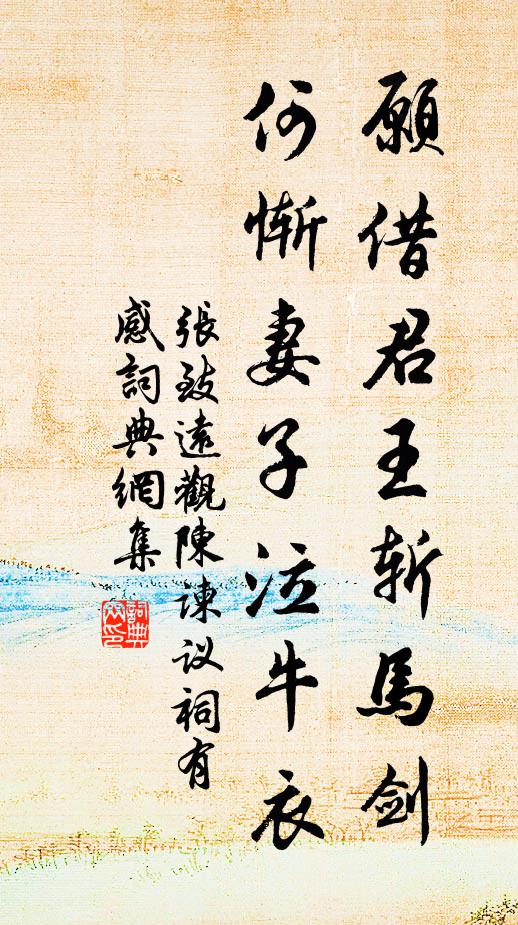 願借君王斬馬劍
何慚妻子泣牛衣
張致遠觀陳諫议祠有
感詞典網集
詞典